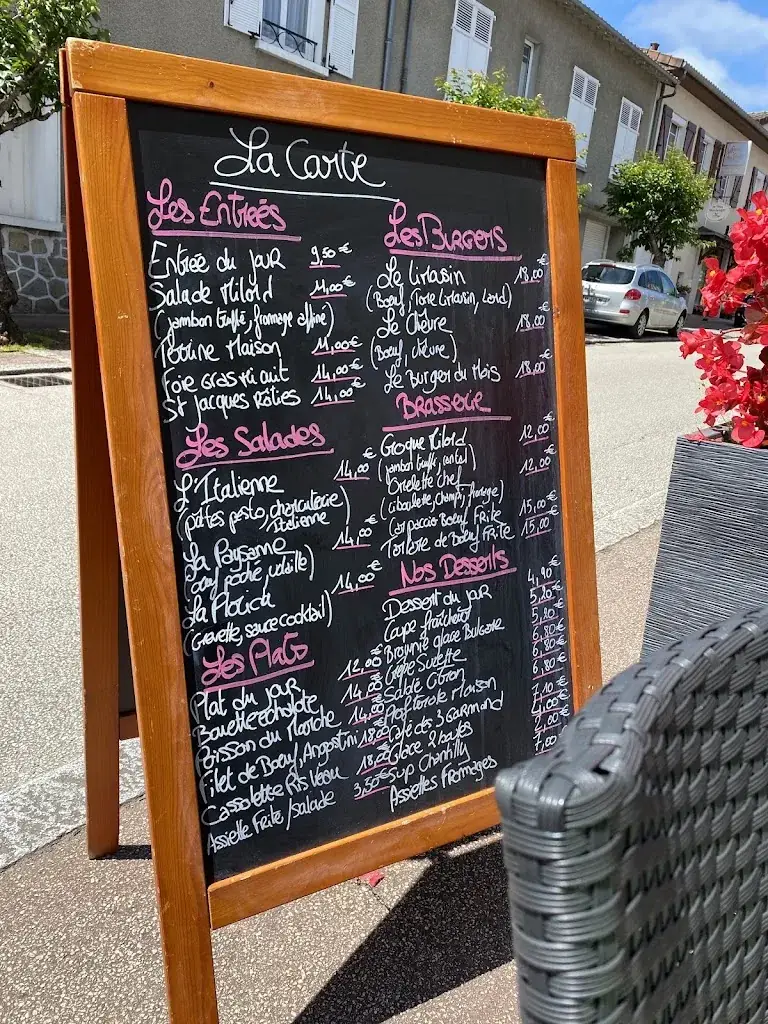 La Carte
Les Entrées
Entrée du jour 9,50 €
Salade Milord 11,00 €
(jambon truffé, fromage affiné)
Terrine Maison 11,00 €
Foie gras mi cuit 14,00 €
St Jacques rôties 14,00 €
Les Salades
L'Italienne 14,00 €
(pâtes pesto, charcuterie
Italienne)
La Paysanne 14,00 €
(oeuf poché, volaille)
La 14,00 €
(Crevette, sauce cocktail)
Les Plats
Plat du jour 12,00 €
Bavette échalote 14,00 €
Poisson du Marché 14,00 €
Filet de Boeuf, 18,00 €
Cassolette Ris Veau 18,00 €
Assiette Frite/salade 3,50 €
Les Burgers
Le Limousin 18,00 €
(Boeuf, Tome Limousin, Lard)
Le Chèvre 18,00 €
(Boeuf, chèvre)
Le Burger du Mois 18,00 €
Brasserie
Croque Milord 12,00 €
(jambon truffé, cantal)
Omelette Chef 12,00 €
(ciboulette, champi, fromage)
Carpaccio Boeuf Frite 15,00 €
Tartare de Boeuf Frite 15,00 €
Nos Desserts
Dessert du jour 4,90 €
Coupe fraîcheur 5,20 €
Brownie glace Bulgare 5,20 €
Crêpe Suzette 6,80 €
Sablé Citron 6,80 €
Profiterole Maison 6,80 €
Café des 3 Gourmand 7,10 €
Glace 2 boules 4,00 €
Sup Chantilly 2,00 €
Assiettes Fromages 7,00 €